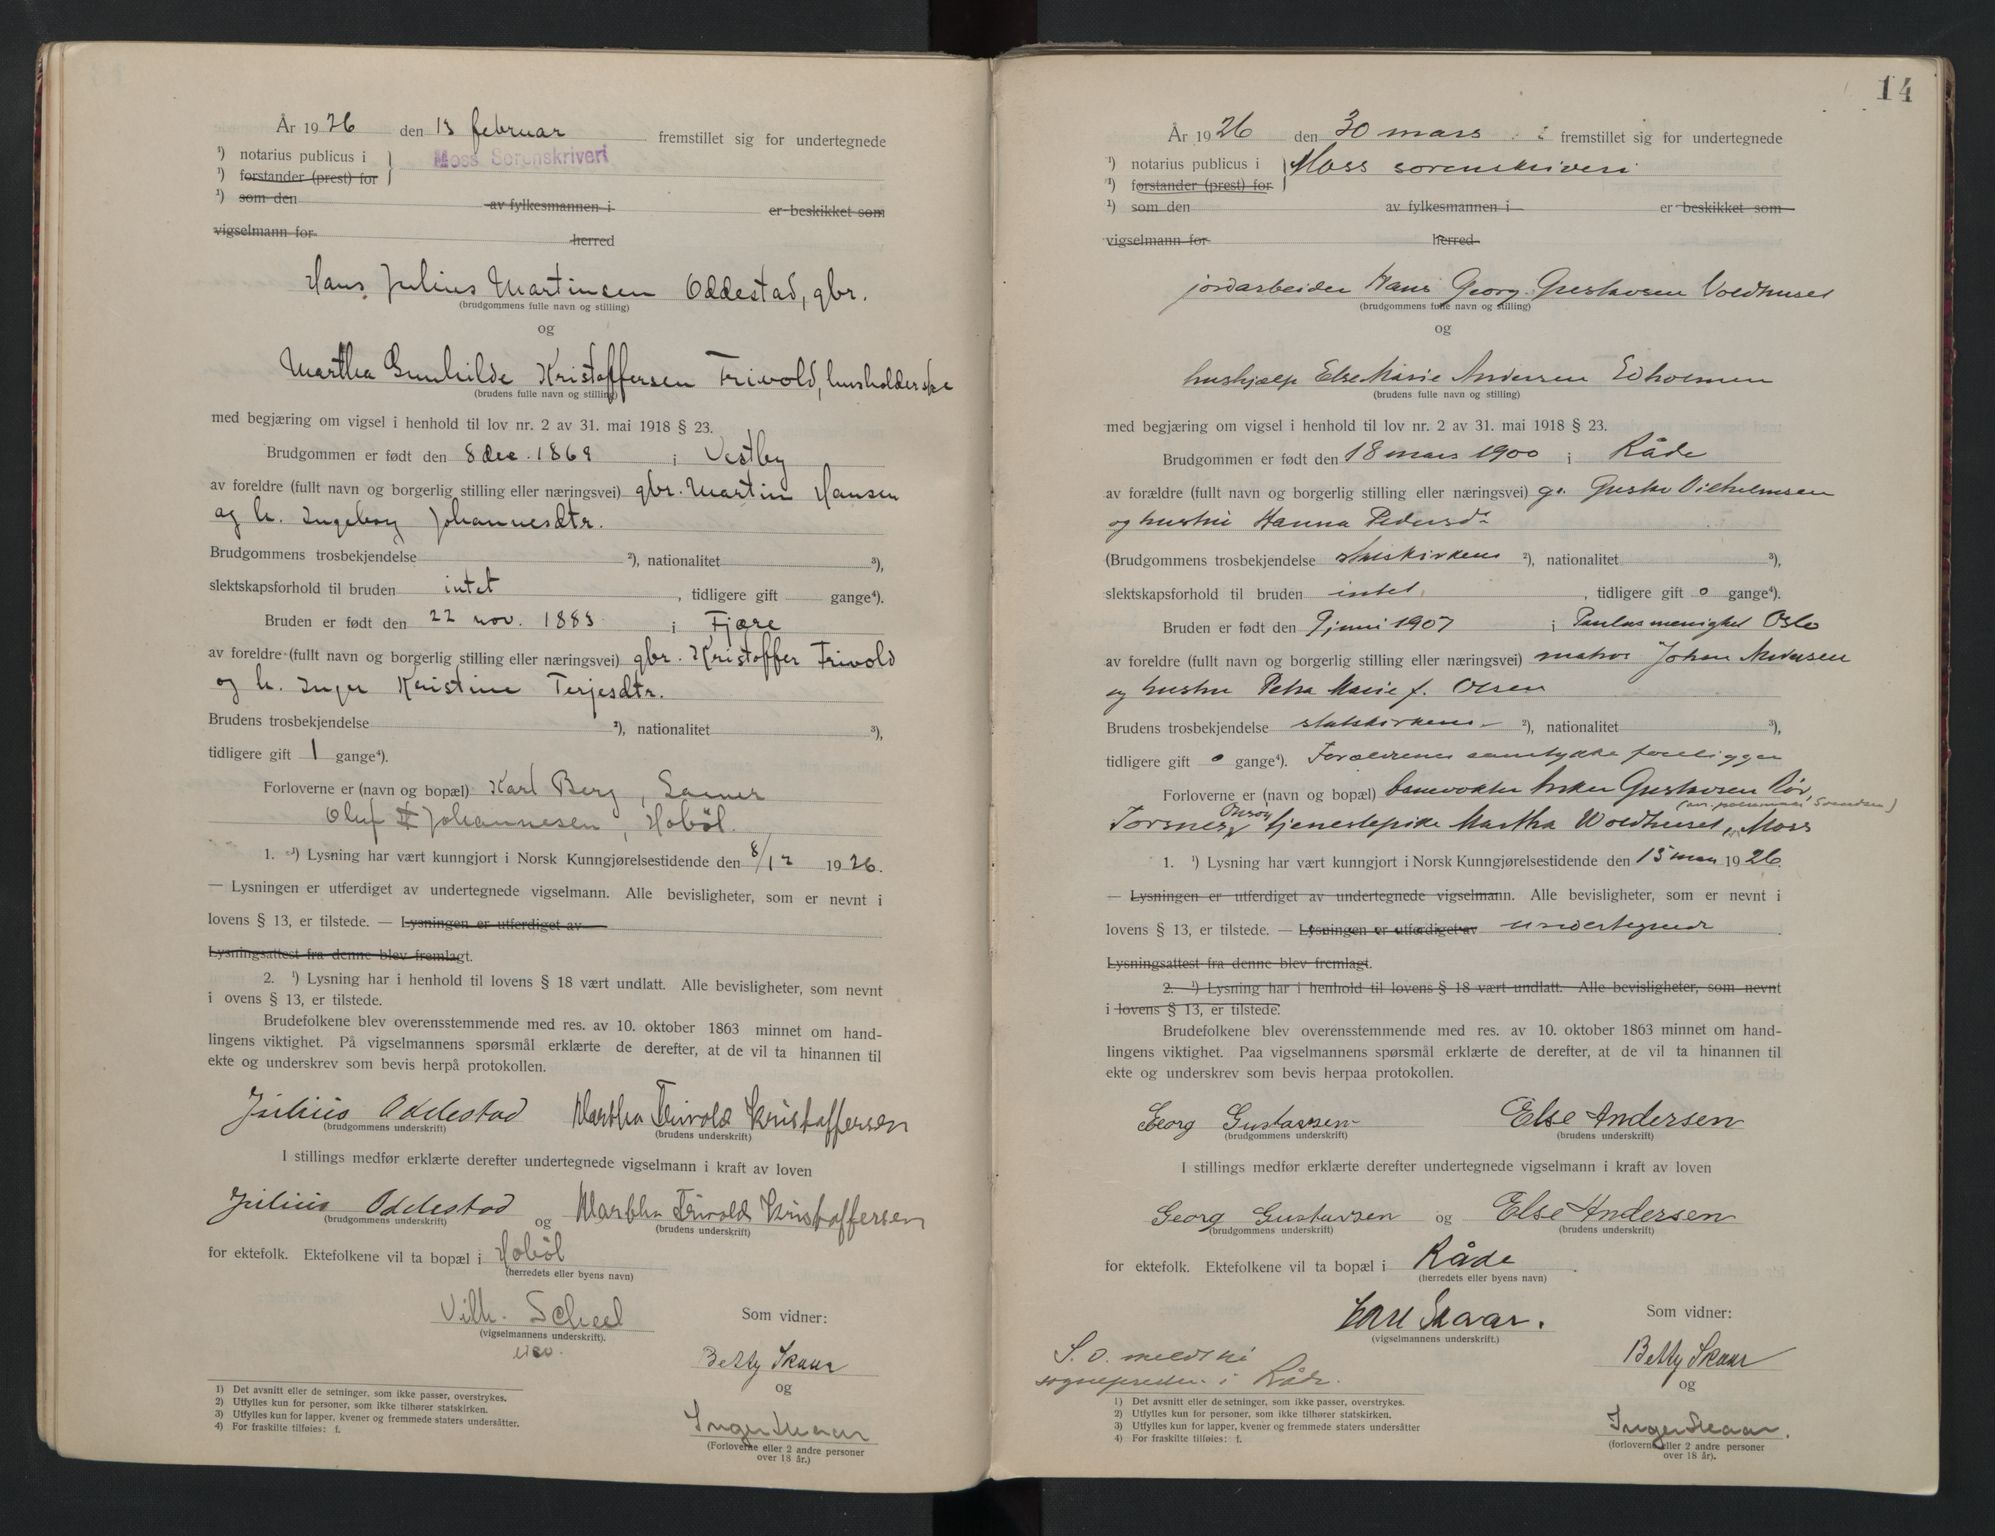 År 1926 den 13 februar fremstillet sig for undertegnede
¹) notarius publicus i } Moss Sorenskriveri
¹) forstander (prest) for
¹) som den av fylkesmannen i er beskikket som
vigselmann for herred
Hans Julius Martinsen Oddestad, gbr.
(brudgommens fulle navn og stilling)
og
Martha Gunhilde Kristoffersen Trivold, husholderske
(brudens fulle navn og stilling)
med begjæring om vigsel i henhold til lov nr. 2 av 31. mai 1918 § 23.
Brudgommen er født den 8 dec. 1869 i Vestby
av foreldre (fullt navn og borgerlig stilling eller næringsvei) gbr. Martin Hansen
og h. Ingeborg Johannesdtr.
Brudgommens trosbekjendelse ²), nationalitet ³),
slektskapsforhold til bruden intet , tidligere gift gange⁴).
Bruden er født den 22 nov. 1883 i Fjære
av foreldre (fullt navn og borgerlig stilling eller næringsvei) gbr. Kristoffer Trivold
og h. Inger Kristine Terjesdtr.
Brudens trosbekjendelse ²), nationalitet ³),
tidligere gift 1 gange⁴).
Forloverne er (navn og bopæl) Karl Berg,
Oluf Johannesen, Hobøl.
1. ¹) Lysning har vært kunngjort i Norsk Kunngjørelsestidende den 8/12 1926.
— Lysningen er utferdiget av undertegnede vigselmann. Alle bevisligheter, som er nevnt i
lovens § 13, er tilstede. — Lysningen er utferdiget av
Lysningsattest fra denne blev fremlagt.
2. ¹) Lysning har i henhold til lovens § 18 vært undlatt. Alle bevisligheter, som nevnt
i ovens § 13, er tilstede.
Brudefolkene blev overensstemmende med res. av 10. oktober 1863 minnet om hand-
lingens viktighet. På vigselmannens spørsmål erklærte de derefter, at de vil ta hinannen til
ekte og underskrev som bevis herpå protokollen.
Julius Oddestad Martha Trivold Kristoffersen
(brudgommens underskrift) (brudens underskrift)
I stillings medfør erklærte derefter undertegnede vigselmann i kraft av loven
Julius Oddestad og Martha Trivold Kristoffersen
(brudgommens underskrift) (brudens underskrift)
for ektefolk. Ektefolkene vil ta bopæl i Hobøl
(herredets eller byens navn)
Vilh. Scheel Som vidner:
(vigselmannens underskrift).
Betty Skaar
og
Inger Skaar
(Forloverne eller 2 andre personer
over 18 år.)
1) Det avsnitt eller de setninger, som ikke passer, overstrykes.
2) Utfylles kun for personer, som ikke tilhører statskirken.
3) Utfylles kun for lapper, kvener og fremmede staters undersåtter.
4) For fraskilte tilføies: f.
14
År 1926 den 30 mars fremstillet sig for undertegnede
¹) notarius publicus i } Moss sorenskriveri
¹) forstander (prest) for
¹) som den av fylkesmannen i er beskikket som
vigselmann for herred
jordarbeider Hans Georg Gustavsen Voldhuset
(brudgommens fulle navn og stilling)
og
hushjælp Else Marie Andersen Edholmen
(brudens fulle navn og stilling)
med begjæring om vigsel i henhold til lov nr. 2 av 31. mai 1918 § 23.
Brudgommen er født den 18 mars 1900 i Råde
av forældre (fullt navn og borgerlig stilling eller næringsvei) Gustav Vilhelmsen
og hustru Hanna Pedersd.
(Brudgommens trosbekjendelse statskirkens ²), nationalitet ³),
slektskapsforhold til bruden intet , tidligere gift 0 gange⁴).
Bruden er født den 9 juni 1907 i Paulus menighet Oslo
av foreldre (fullt navn og borgerlig stilling eller næringsvei) matros Johan Andersen
og hustru Petra Marie f. Olsen
Brudens trosbekjendelse statskirkens ²), nationalitet ³),
tidligere gift 0 gange⁴). Forældrenes samtykke foreligger
Forloverne er (navn og bopæl) banevokter Gustavsen
Torsnes, Onsøy tjenestepike Martha Woldhuset, Moss
1. ¹) Lysning har vært kunngjort i Norsk Kunngjørelsestidende den 15 mars 1926.
— Lysningen er utferdiget av undertegnede vigselmann. Alle bevisligheter, som er nevnt i
lovens § 13, er tilstede. — Lysningen er utferdiget av undertegnede
Lysningsattest fra denne blev fremlagt.
2. ¹) Lysning har i henhold til lovens § 18 vært undlatt. Alle bevisligheter, som nevnt
i lovens § 13, er tilstede.
Brudefolkene blev overensstemmende med res. av 10. oktober 1863 minnet om hand-
lingens viktighet. Paa vigselmannens spørsmål erklærte de derefter, at de vil ta hinannen til
ekte og underskrev som bevis herpaa protokollen.
Georg Gustavsen Else Andersen
(brudgommens underskrift) (brudens underskrift)
I stillings medfør erklærte derefter undertegnede vigselmann i kraft av loven
Georg Gustavsen og Else Andersen
(brudgommens underskrift) (brudens underskrift)
for ektefolk. Ektefolkene vil ta bopæl i Råde
(herredets eller byens navn)
Karl Skaar. Som vidner:
(vigselmannens underskrift.)
S. D. meldt til
sognepresten i Råde.
Betty Skaar
og
Inger Skaar.
(forloverne eller 2 andre personer
over 18 år).
1) Det avsnitt eller de setninger, som ikke passer, overstrykes.
2) Utfylles kun for personer, som ikke tilhører statskirken.
3) Utfylles kun for lapper, kvener og fremmede staters undersåtter
4) For fraskilte tilføies: f.